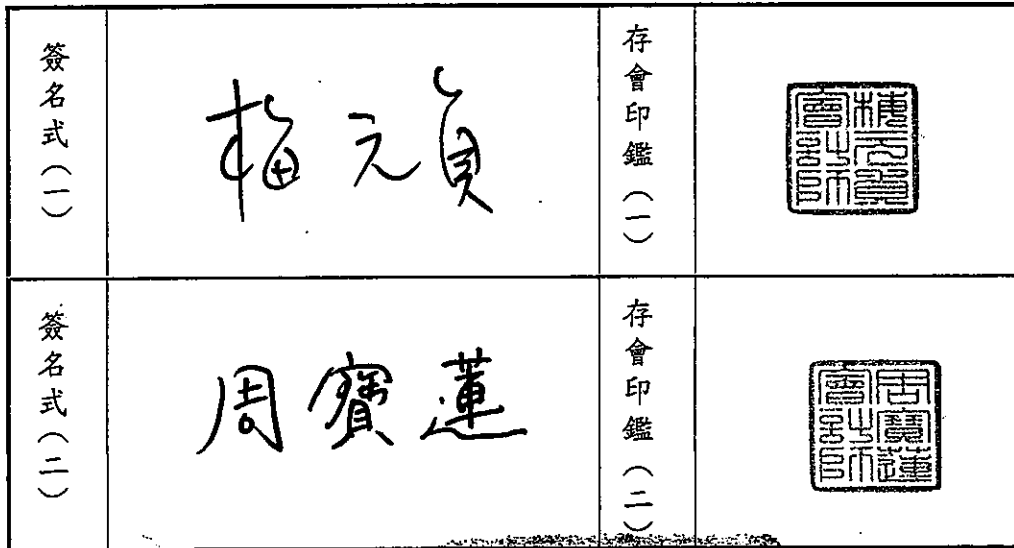 簽名式(一)
梅元貞
存會印鑑(一)
梅元貞
會計師
簽名式(二)
周寶蓮
存會印鑑(二)
周寶蓮
會計師